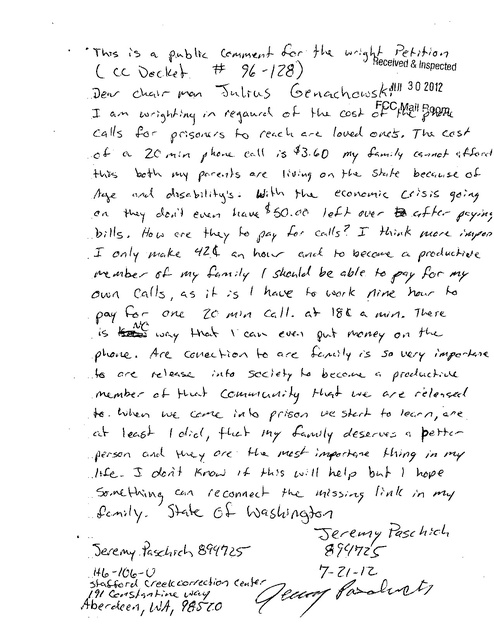 This is a public comment for the wright Petition
(CC Docket # 96-128)
Received & Inspected
JUL 30 2012
FCC Mail Room
Dear chair man Julius Genachowski
I am wrighting in regaurd of the cost of the phone
calls for prisoners to reach are loved ones. The cost
of a 20 min phone call is $3.60 my family cannot afford
this both my parents are living on the state because of
Age and disability's. With the economic crisis going
on they don't even have $50.00 left over after paying
bills. How are they to pay for calls? I think more impor
I only make 42¢ an hour and to become a productive
member of my family I should be able to pay for my
own calls, as it is I have to work nine hour to
pay for one 20 min call. at 18¢ a min. There
is NO way that I can even put money on the
phone. Are conection to are family is so very importane
to are release into society to become a productive
member of that community that we are released
to. When we come into prison we start to learn, are
at least I did, that my family deserves a better
person and they are the most importane thing in my
life. I don't know if this will help but I hope
something can reconnect the missing link in my
family. State of Washington
Jeremy Paschich
894725
7-21-12
Jeremy Paschich 894725
H6-106-U
Stafford Creek correction center
191 Constantine way
Aberdeen, WA, 98520
Jeremy Paschich